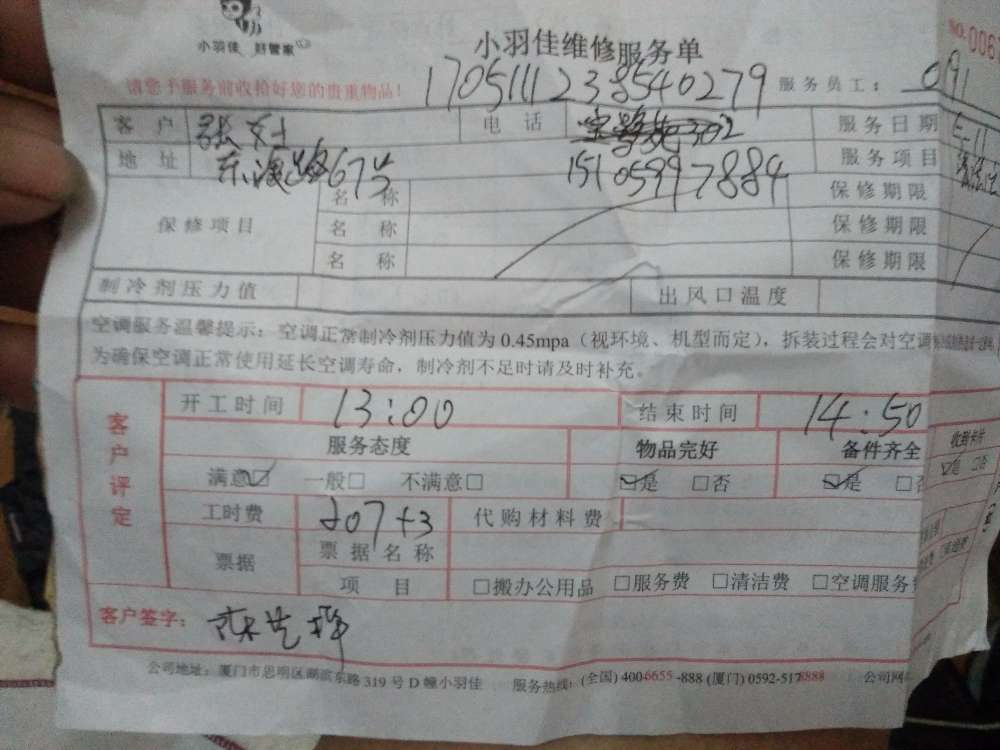 小羽佳 好管家
小羽佳维修服务单
NO. 006
请您予服务前收拾好您的贵重物品!
17051112385540279
服务员工: 091
客 户
电 话
服务日期
地 址 67号
15105997884
服务项目
保修项目
名 称
保修期限
名 称
保修期限
名 称
保修期限
制冷剂压力值
出风口温度
空调服务温馨提示:空调正常制冷剂压力值为 0.45mpa(视环境、机型而定),拆装过程会对空调
为确保空调正常使用延长空调寿命,制冷剂不足时请及时补充。
客户评定
开工时间 13:00 结束时间 14:50
服务态度 物品完好 备件齐全 收到卡片
满意☑ 一般□ 不满意□ ☑是 □否 ☑是 □否 ☑是 □否
工时费 207+3 代购材料费
票据
票据名称
项 目 □搬办公用品 □服务费 □清洁费 □空调服务费
客户签字:
公司地址:厦门市思明区湖滨东路 319 号 D 幢小羽佳 服务热线:(全国) 400-6655-888 (厦门) 0592-5178888 公司网